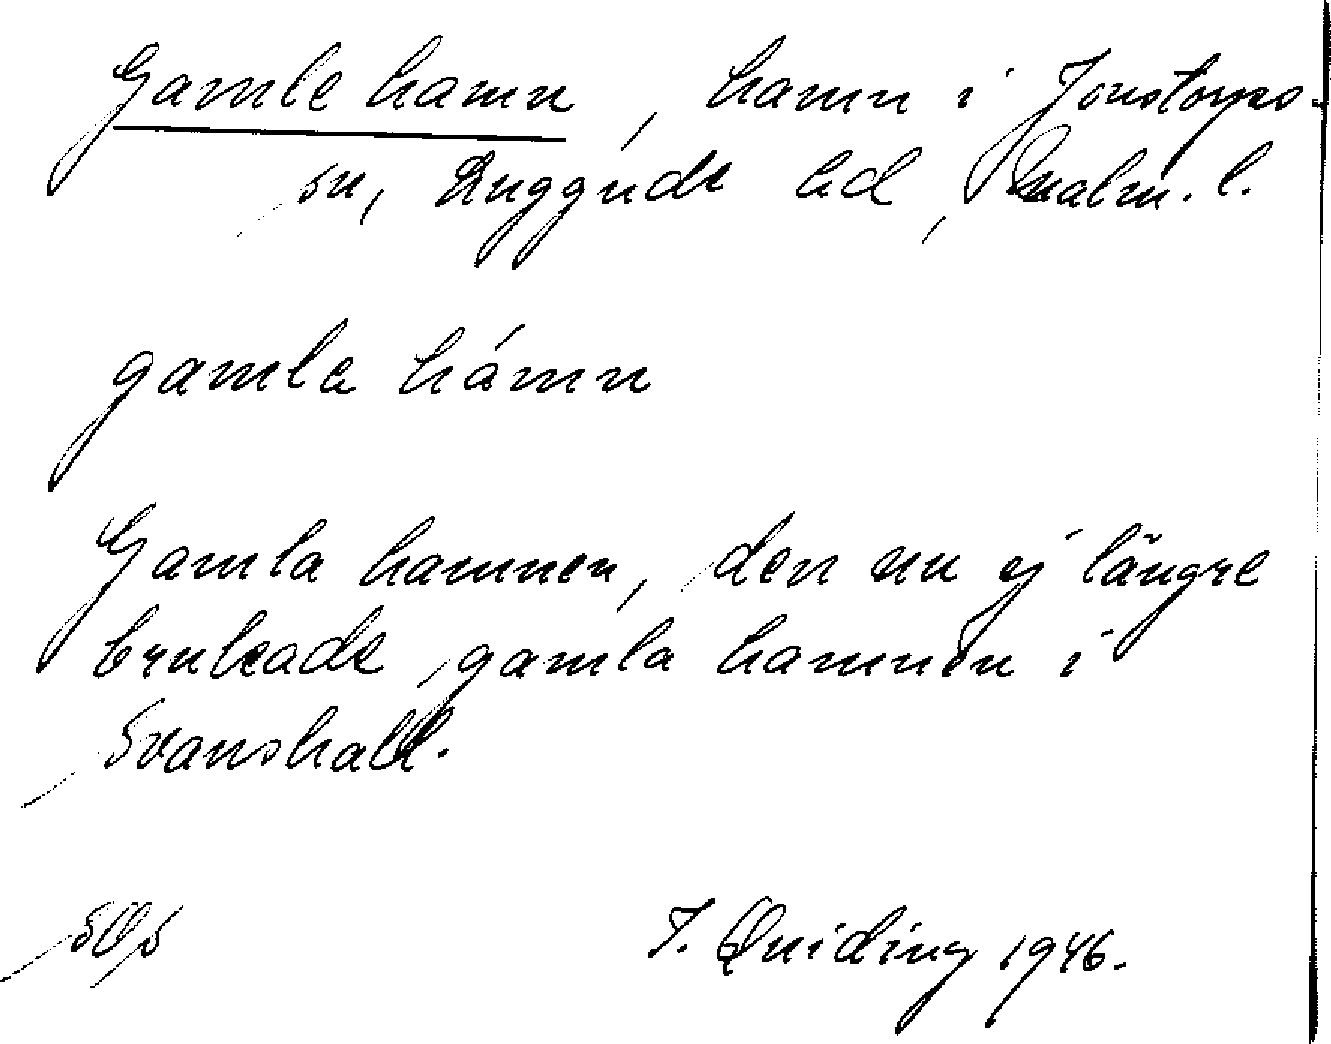 Gamle hamn, hamn i Jonstorps
sn, Luggude hd, Malm. l.
gamla hámn
Gamla hamnen, den nu ej längre
brukade gamla hamnen i
Svanshall.
SOS
I. Quiding 1946.